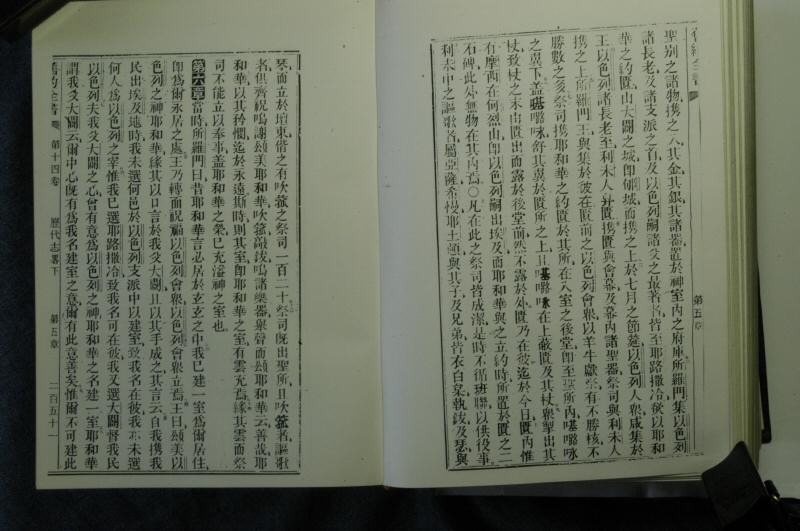 聖別之諸物携之入其金其銀其諸器置於神室內之府庫所羅門集以色列
諸長老及諸支派之首及以色列嗣諸父之最著名皆至耶路撒冷欲以耶和
華之約匱由大闢之城即郇城而携之上於七月之節筵以色列人衆咸集於
王以色列諸長老至利未人舁匱携匱與會幕及幕內諸聖器祭司與利未人
携之上所羅門王與集於彼在匱前之以色列會衆以羊牛獻祭有不勝核不
勝數之多祭司携耶和華之約匱於其所在入室之後堂即至聖所內𠸝𡀔咏
之翼下蓋𠸝𡀔咏舒其翼於匱所之上且𠸝𡀔咏在上蔽匱及其杖衆掣出其
杖致杖之末由匱出而露於後堂前然不露於外匱乃在彼迄於今日匱內惟
有摩西在何烈山即以色列嗣出埃及而耶和華與之立約時所置於匱之二
石碑此外無物在其內焉〇凡在此之祭司皆成潔是時不循班聯以供役事
利未中之謳歌者屬亞薩希幔耶土頓與其子及兄弟皆衣白枲執鈸及瑟與
第五章
琴而立於壇東偕之有吹筬之祭司一百二十祭司旣出聖所且吹筬者謳歌
者俱齊祝鳴謝頌美耶和華吹筬敲鈸鳴諸樂器舉聲而頌耶和華云善哉耶
和華以其矜憫迄於永遠斯時則其室即耶和華之室有雲充焉緣其雲而祭
司不能立以奉事蓋耶和華之榮已充溢神之室也
第六章當時所羅門曰昔耶和華言必居於玄玄之中我已建一室爲爾居住
即爲爾永居之處王乃轉面祝福以色列會衆以色列會衆立焉王曰頌美以
色列之神耶和華緣其以口言於我父大闢且以其手成之其言云自我携我
民出埃及地時我未選何邑於以色列支派中以建室致我名在彼我亦未選
何人爲以色列之宰惟我已選耶路撒冷致我名可在彼我又選大闢督我民
以色列夫我父大闢之心曾有意爲以色列之神耶和華之名建一室耶和華
謂我父大闢云爾中心旣有爲我名建室之意爾有此意善矣惟爾不可建此
舊約全書 第十四卷 歷代志畧下 第五章 二百五十一